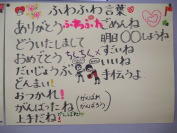 ふわふわ言葉
ありがとう
ごめんね
どういたしまして
明日〇〇しようね
おめでとう
すごいね
だいじょうぶ
いいね
どんまい
手伝うよ
おつかれ!
がんばったね
(がんばれ
がんばろう)
上手だね!